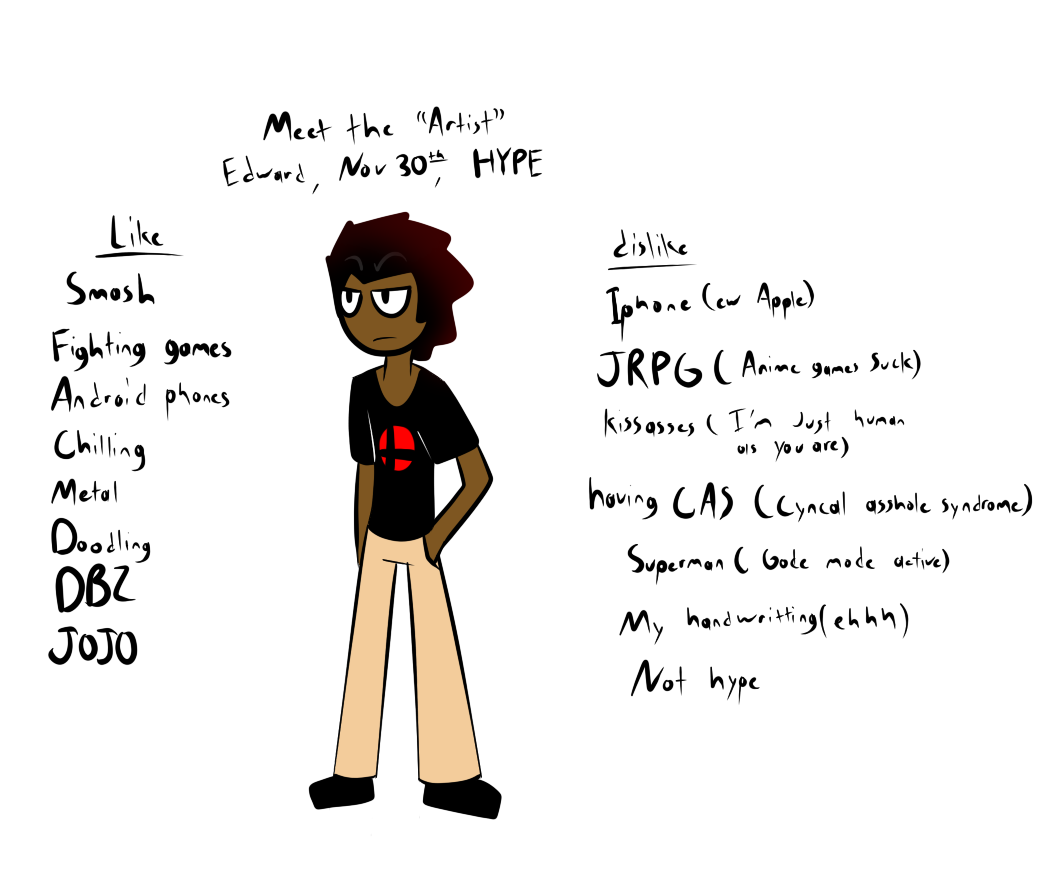 Meet the "Artist"
Edward, Nov 30th, HYPE
Like
Smash
Fighting games
Android phones
Chilling
Metal
Doodling
DBZ
JOJO
dislike
Iphone (ew Apple)
JRPG (Anime games suck)
kissasses (I'm Just human
as you are)
having CAS (Cyncal asshole syndrome)
Superman (Gode mode active)
My handwritting (ehhh)
Not hype